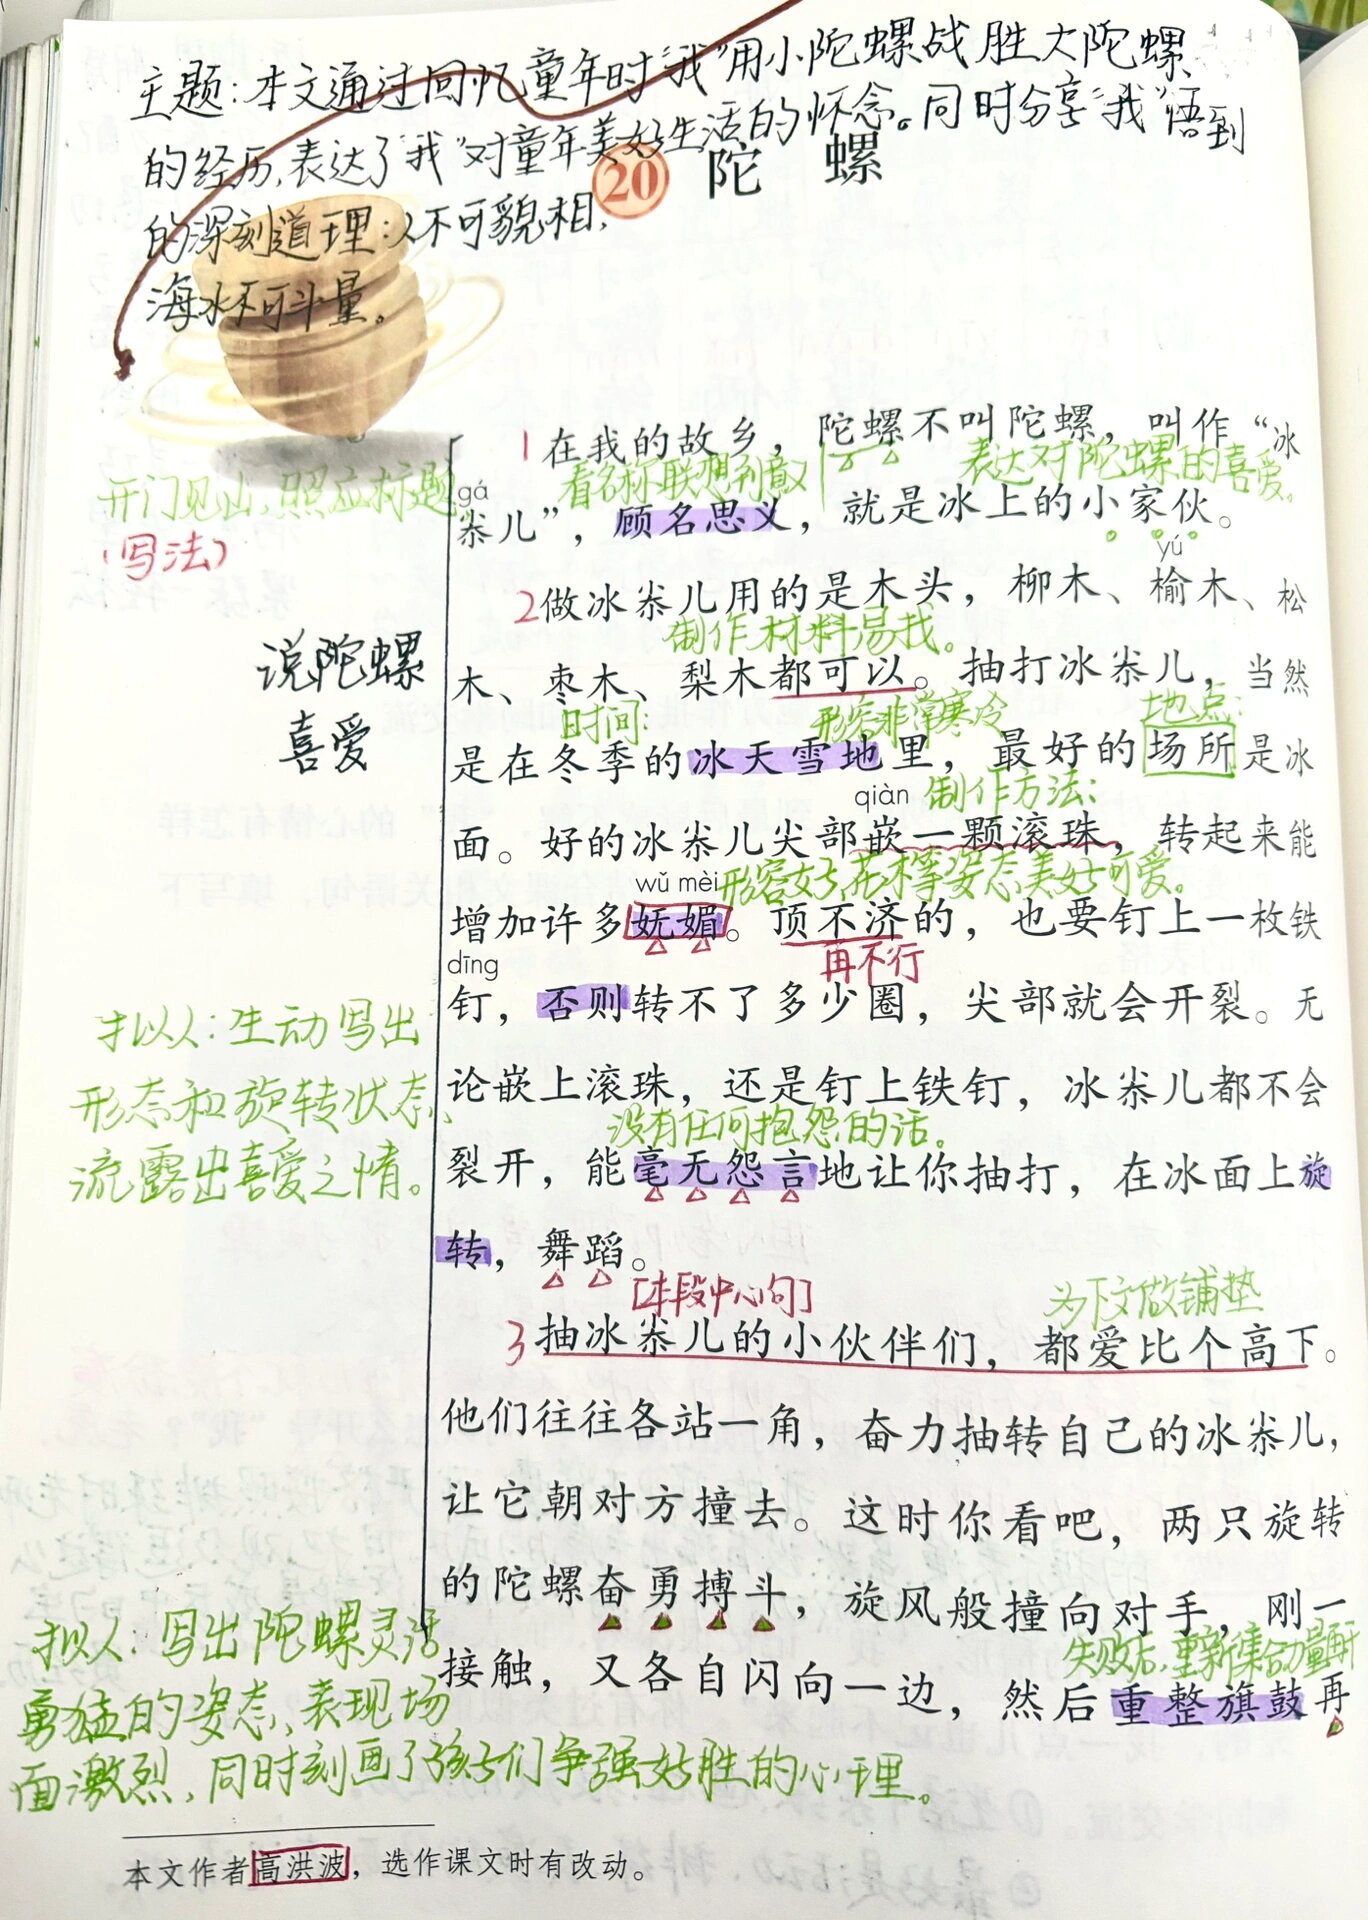 主题:本文通过回忆童年时“我”用小陀螺战胜大陀螺
的经历,表达了“我”对童年美好生活的怀念。同时分享“我”悟到
的深刻道理:人不可貌相,
海水不可斗量。
20 陀 螺
1 在我的故乡，陀螺不叫陀螺，叫作“冰
开门见山,照应标题
看名称联想到意义
表达对陀螺的喜爱。
gá
尜儿”，顾名思义，就是冰上的小家伙。
(写法)
yú
2 做冰尜儿用的是木头，柳木、榆木、松
制作材料易找。
说陀螺
喜爱
木、枣木、梨木都可以。抽打冰尜儿，当然
时间:
形容非常寒冷
地点:
是在冬季的冰天雪地里，最好的场所是冰
qiàn
制作方法:
面。好的冰尜儿尖部嵌一颗滚珠，转起来能
wǔ mèi
形容女子,花木等姿态美好可爱。
增加许多妩媚。顶不济的，也要钉上一枚铁
dīng
再不行
钉，否则转不了多少圈，尖部就会开裂。无
拟人:生动写出
形态和旋转状态,
流露出喜爱之情。
论嵌上滚珠，还是钉上铁钉，冰尜儿都不会
没有任何抱怨的话。
裂开，能毫无怨言地让你抽打，在冰面上旋
转，舞蹈。
[本段中心句]
为下文做铺垫
3 抽冰尜儿的小伙伴们，都爱比个高下。
他们往往各站一角，奋力抽转自己的冰尜儿，
让它朝对方撞去。这时你看吧，两只旋转
的陀螺奋勇搏斗，旋风般撞向对手，刚一
失败后,重新集合力量再干
接触，又各自闪向一边，然后重整旗鼓再
拟人:写出陀螺灵活
勇猛的姿态,表现场
面激烈,同时刻画了孩子们争强好胜的心理。
本文作者高洪波，选作课文时有改动。